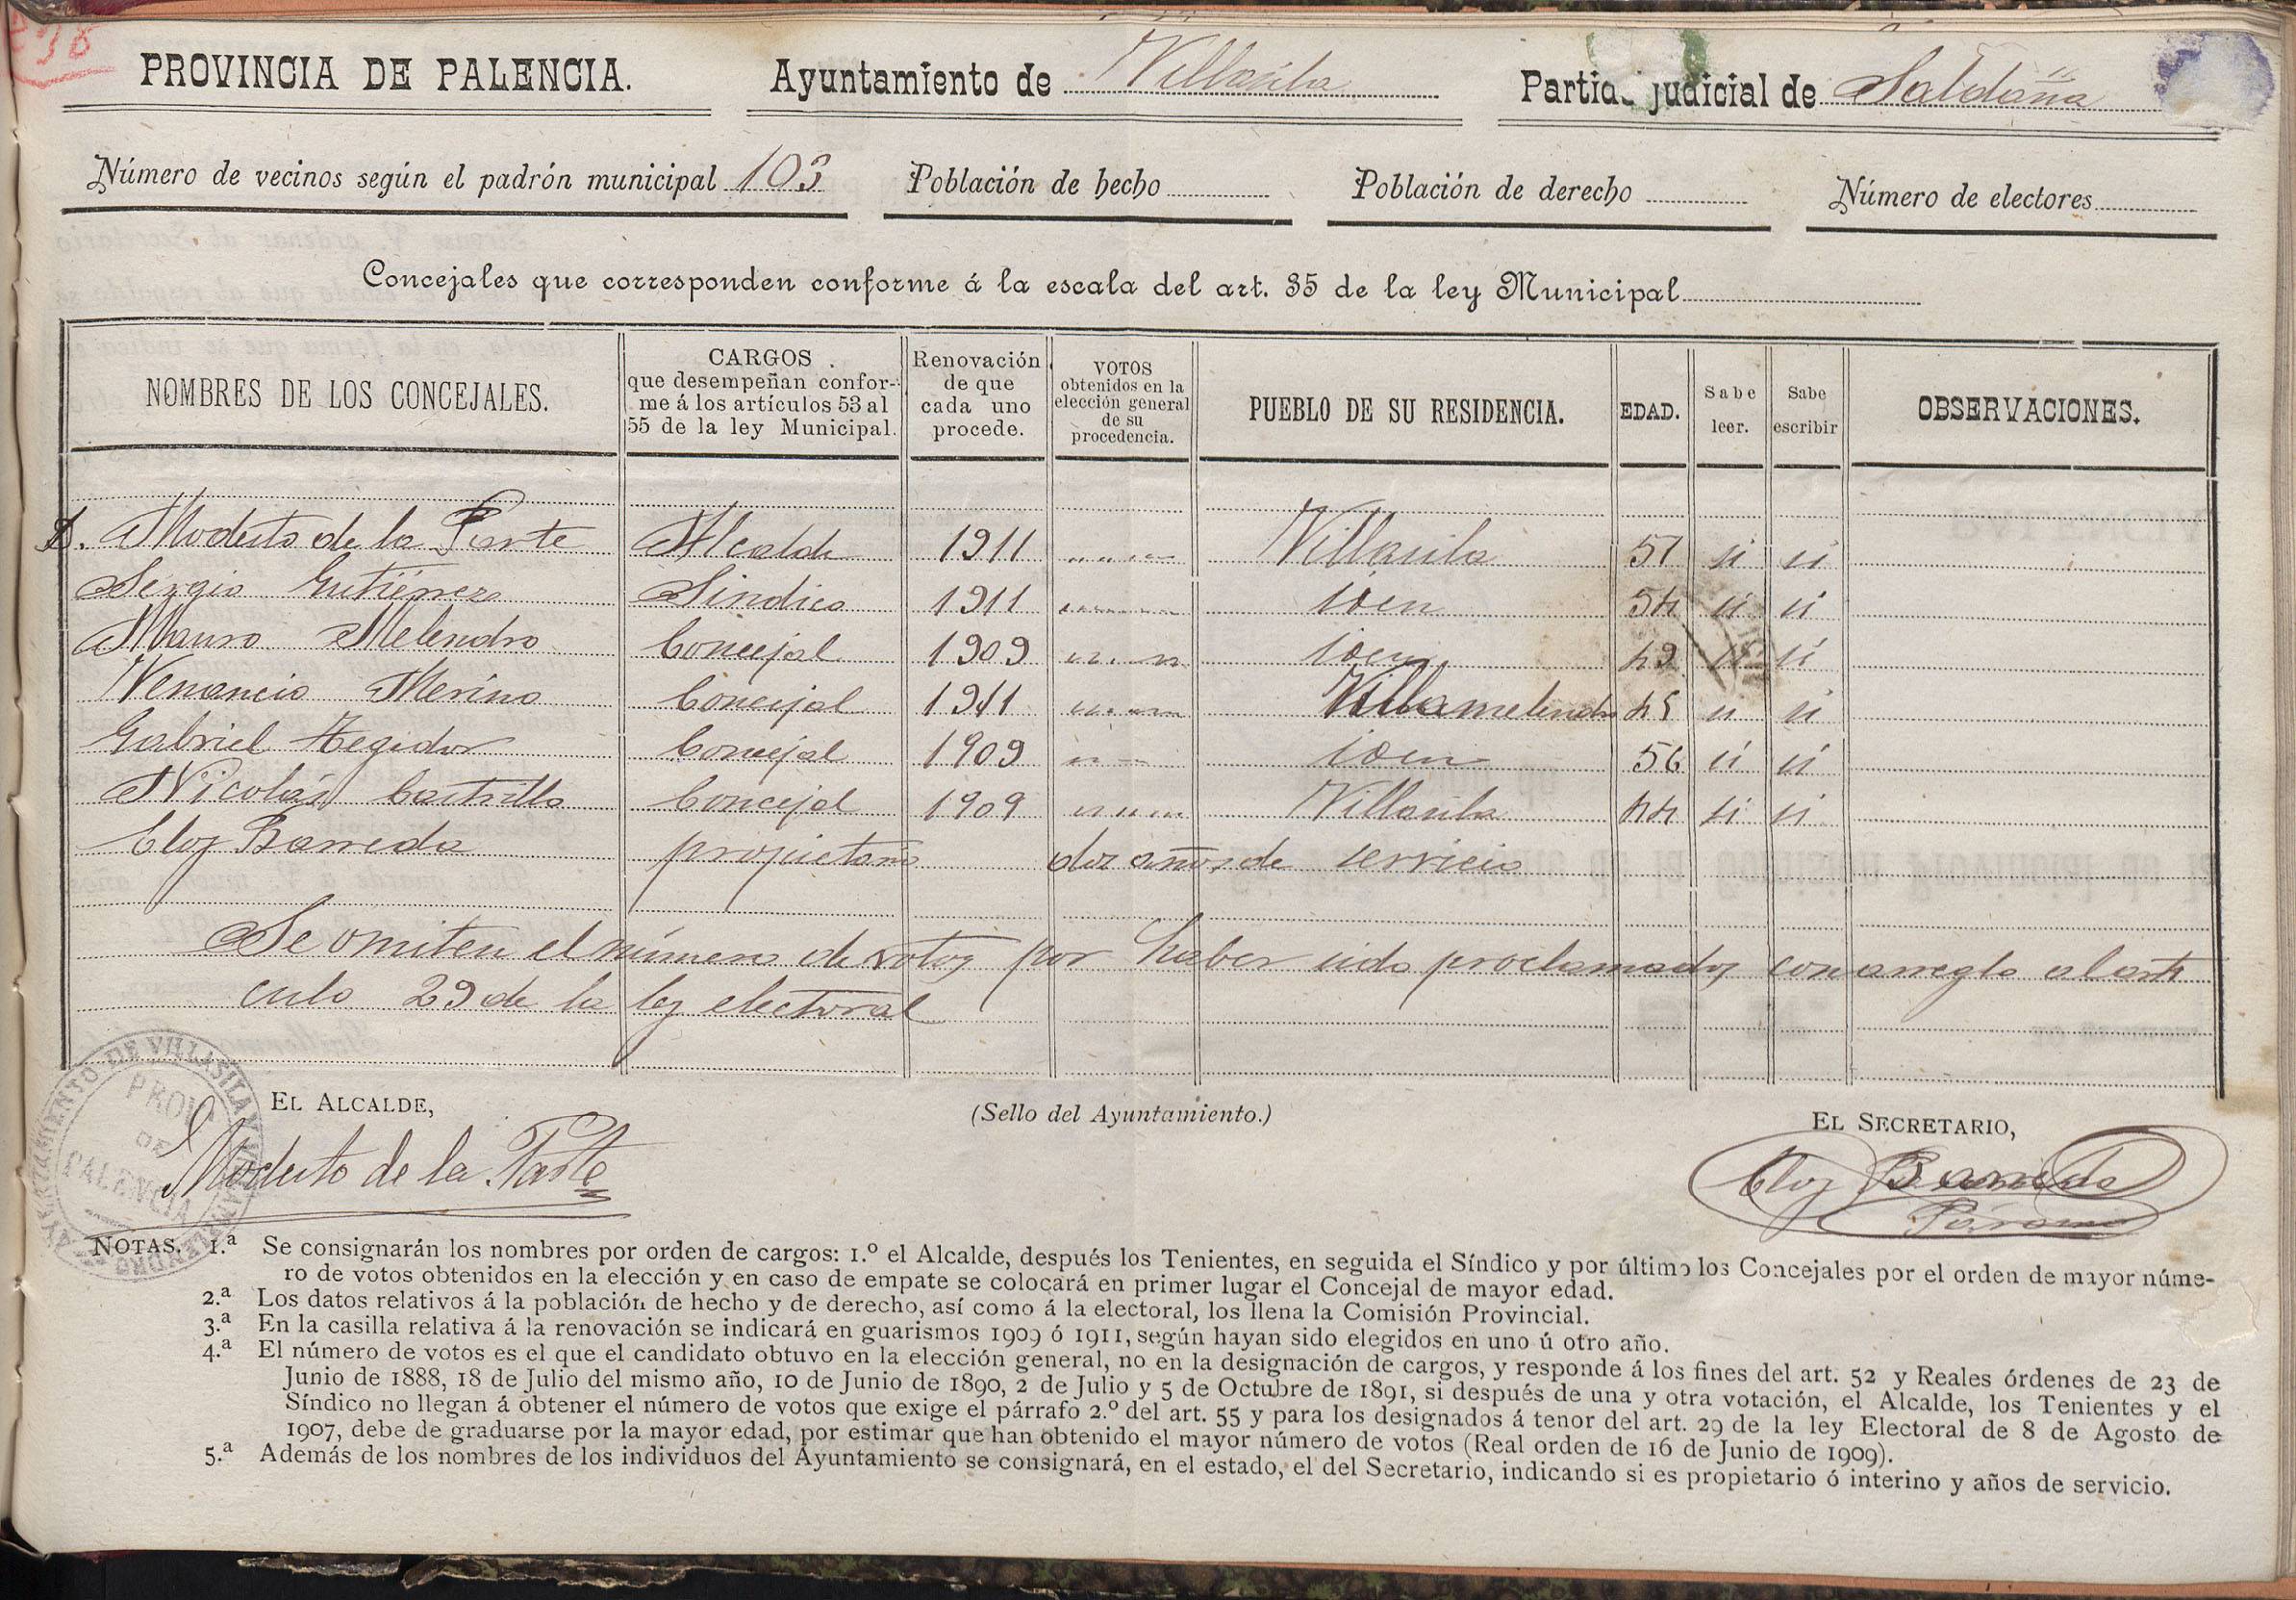 298
PROVINCIA DE PALENCIA. Ayuntamiento de Villasila Partido judicial de Saldaña
Número de vecinos según el padrón municipal 103 Población de hecho Población de derecho Número de electores
Concejales que corresponden conforme á la escala del art. 35 de la ley Municipal
NOMBRES DE LOS CONCEJALES. CARGOS que desempeñan conforme á los artículos 53 al 55 de la ley Municipal. Renovación de que cada uno procede. VOTOS obtenidos en la elección general de su procedencia. PUEBLO DE SU RESIDENCIA. EDAD. Sabe leer. Sabe escribir OBSERVACIONES.
D. Modesto de la Parte Alcalde 1911 Villasila 57 si si
Sergio Gutiérrez Sindico 1911 idem 54 si si
Mauro Melendro Concejal 1909 idem 49 si si
Venancio Merino Concejal 1911 Villamelendro 45 si si
Gabriel Tegedor Concejal 1909 idem 56 si si
Nicolás Castrillo Concejal 1909 Villasila 44 si si
Eloy Barreda propietario dos años de servicio
Se omiten el número de votos por haber sido proclamados con arreglo al artí
culo 29 de la ley electoral
AYUNTAMIENTO DE VILLASILA Y VILLAMELENDRO
PROV.ª
DE
PALENCIA
EL ALCALDE, (Sello del Ayuntamiento.) EL SECRETARIO,
Modesto de la Parte Eloy Barreda
Páramo
NOTAS. 1.ª Se consignarán los nombres por orden de cargos: 1.º el Alcalde, después los Tenientes, en seguida el Síndico y por último los Concejales por el orden de mayor núme-
ro de votos obtenidos en la elección y en caso de empate se colocará en primer lugar el Concejal de mayor edad.
2.ª Los datos relativos á la población de hecho y de derecho, así como á la electoral, los llena la Comisión Provincial.
3.ª En la casilla relativa á la renovación se indicará en guarismos 1909 ó 1911, según hayan sido elegidos en uno ú otro año.
4.ª El número de votos es el que el candidato obtuvo en la elección general, no en la designación de cargos, y responde á los fines del art. 52 y Reales órdenes de 23 de
Junio de 1888, 18 de Julio del mismo año, 10 de Junio de 1890, 2 de Julio y 5 de Octubre de 1891, si después de una y otra votación, el Alcalde, los Tenientes y el
Síndico no llegan á obtener el número de votos que exige el párrafo 2.º del art. 55 y para los designados á tenor del art. 29 de la ley Electoral de 8 de Agosto de
1907, debe de graduarse por la mayor edad, por estimar que han obtenido el mayor número de votos (Real orden de 16 de Junio de 1909).
5.ª Además de los nombres de los individuos del Ayuntamiento se consignará, en el estado, el del Secretario, indicando si es propietario ó interino y años de servicio.